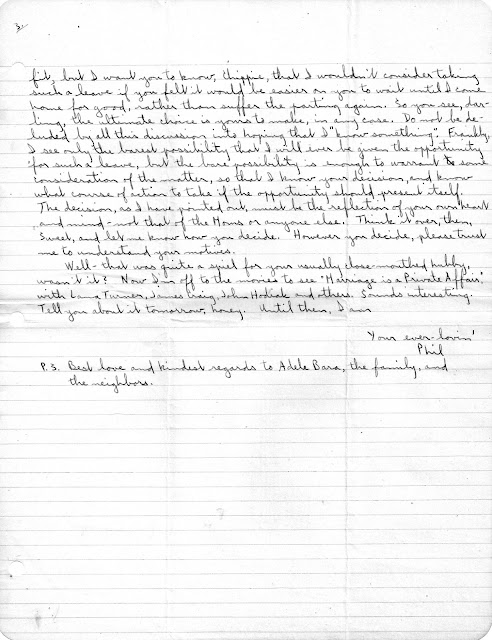 3.
fit, but I want you to know, Chippie, that I wouldn't consider taking
such a leave if you felt it would be easier on you to wait until I come
home for good, rather than suffer the parting again. So you see, dar-
ling, the ultimate choice is yours to make, in any case. Do not be de-
luded by all this discussion into hoping that I "know something". Frankly,
I see only the barest possibility that I will ever be given the opportunity
for such a leave, but the bare possibility is enough to warrant some
consideration of the matter, so that I know your decision, and know
what course of action to take if the opportunity should present itself.
The decision, as I have pointed out, must be the reflection of your own heart
and mind - not that of the Moms or anyone else. Think it over, then,
Sweet, and let me know how you decide. However you decide, please trust
me to understand your motives.
Well - that was quite a spiel for your usually close-mouthed hubby,
wasn't it? Now I'm off to the movies to see "Marriage is a Private Affair",
with Lana Turner, James Craig, John Hodiak and others. Sounds interesting.
Tell you about it tomorrow, honey. Until then, I am
Your ever-lovin'
Phil
P.S. Best love and kindest regards to Adele Bara, the family, and
the neighbors.